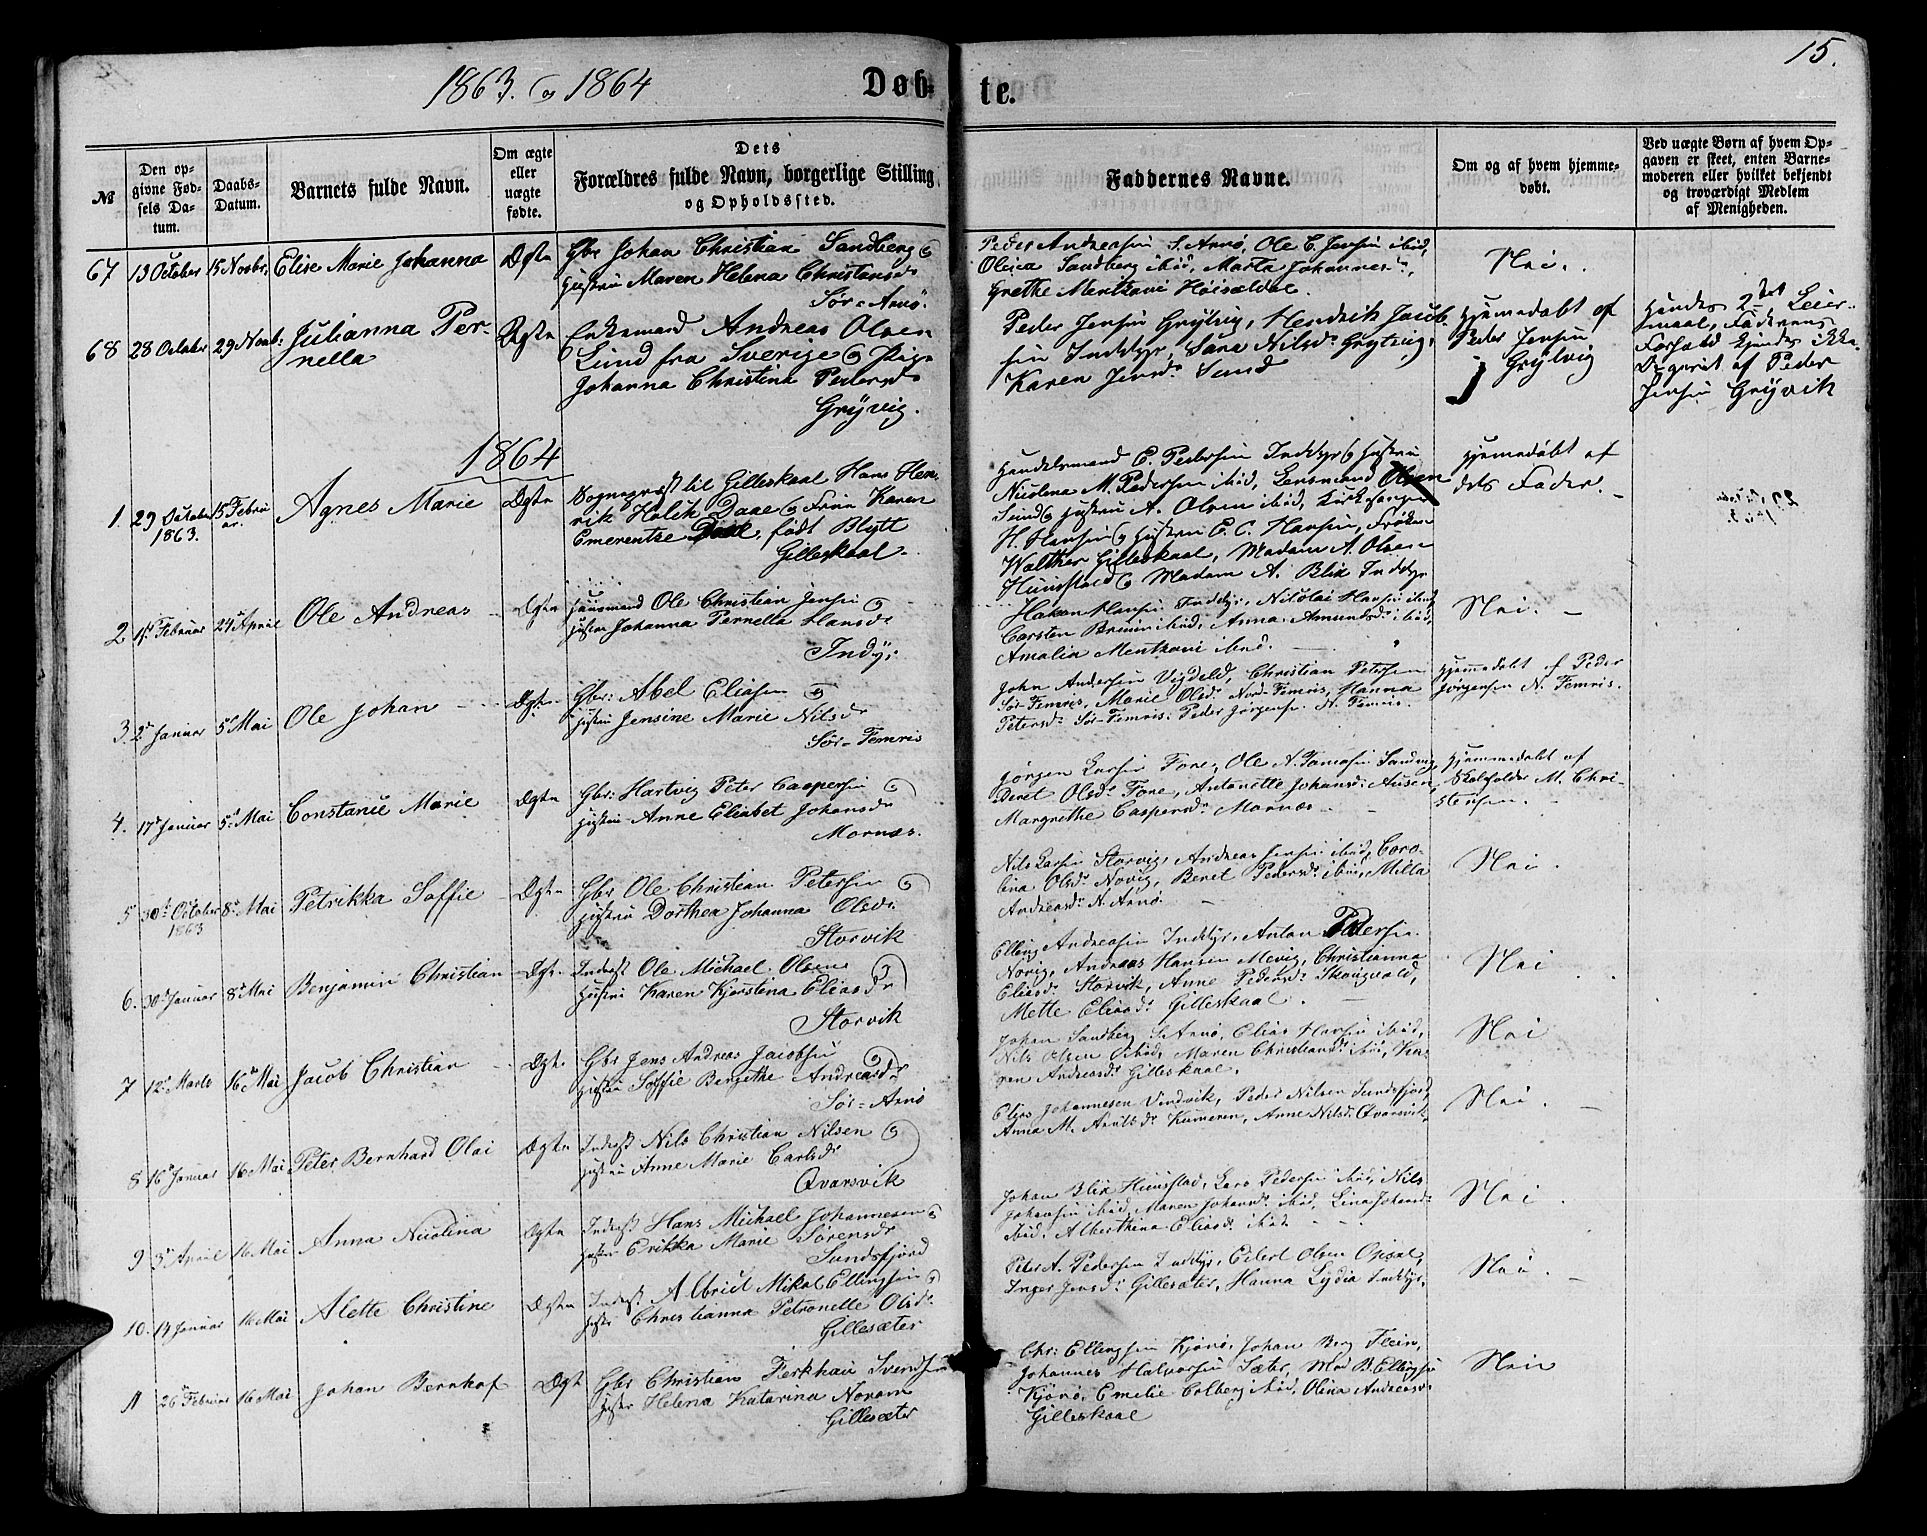 1863. og 1864
Døb-
te.
15.
№
Den op-
givne Fød-
sels Da-
tum.
Daabs-
Datum.
Barnets fulde Navn.
Om ægte
eller
uægte
fødte.
Dets
Forældres fulde Navn, borgerlige Stilling
og Opholdssted.
Faddernes Navne.
Om og af hvem hjemme-
døbt.
Ved uægte Børn af hvem Op-
gaven er skeet, enten Barne-
moderen eller hvilket bekjendt
og troværdigt Medlem
af Menigheden.
67 13 October 15 Novbr. Elise Marie Johanna Ægte
Gbr Johan Christian Sandberg og
Hustru Maren Helena Christiansdr
Sør-Arnö.
Peder Andreasen S. Arnö, Ole C. Jensen ibid,
Sandberg ibid, Marta Johannesdr,
Grethe Mentzoni
Nei.
68 28 October 29 Novb: Julianna Per-
nella
Enkemand Andreas Olsen
Lund fra Sverige og Pige
Johanna Christina Pedersdr
Peder Jensen Hendrik Jacob-
sen Inddyr, Sara Nilsdr
Karen Jensdr Sund
Hjemmedøbt af
Peder Jensen
1864
1. 29 October 15 Febru
1863. ar.
Agnes Marie Ægte
Sogneprest til Gilleskaal Hans Hen-
rik Holck Daae og Frue Karen
Emerentze født Blytt
Gilleskaal.
Handelsmand C. Pedersen Inddyr og Hustru
Nicolena M. Pedersen ibid, Lensmand Olsen
Sund og Hustru A. Olsen ibid, Kirkesanger
H. Hansen og Hustru E. C. Hansen, Frøken
Walther Gilleskaal, Madam A. Olsen
og Madam A. Blix Inddyr
Hjemmedøbt af
dets Fader.
2 Februar 24 April Ole Andreas Ægte
Huusmand Ole Christian Jensen og
Hustru Johanna Pernella Hansdr
Indyr
Hakon Hansen Inddyr, Nikolai Hansen ibid,
Carsten ibid, Anna Amundsdr ibid,
Amalia Mentzoni ibid.
Nei.
3. 2 Januar 5 Mai Ole Johan Ægte
Gbr: Abel Eliasen og
Hustru Jensine Marie Nilsdr
Sør-Femris
John Andersen Christian Petersen
Sør-Femris, Marie Olsdr Nord-Femris, Hanna
Petersdr Sør-Femris. Peder Jørgensen N. Femris.
Hjemmedøbt af Peder
Jørgensen N. Femris.
4. 17 Januar 5 Mai Constanse Marie Ægte
Gbr: Hartvig Peter Caspersen og
Hustru Anne Elisbet Johansdr
Mornæs.
Jørgen Larsen Fore, Ole A.
Beret Olsdr Fore, Antonette Johansdr
Margrethe Caspersdr Mornæs
Hjemmedøbt af
Skoleholder M. Chri-
stensen.
5 30 October 8 Mai
1863
Petrikka Soffie Ægte
Gbr Ole Christian Petersen og
Hustru Dorthea Johanna Olsdr
Storvik
Nils Larsen Storvig, Andreas Jensen ibid, Caro-
lina Olsdr Novig, Beret Pedersdr ibid, Milla
Andreasdr N. Arnö.
Nei.
6. 30 Januar 8 Mai Benjamin Christian Ægt.
Inderst Ole Michael Olsen og
Hustru Karen Kjerstena Eliasdr
Storvik
Elling Andreasen Inddyr, Anton Petersen
Novig, Andreas Hansen Mevig, Christianna
Eliasdr Storvik, Anne Pedersdr
Mette Eliasdr Gilleskaal.
Nei
7 12 Marts 16 Mai Jacob Christian Ægte
Gbr Jens Andreas Jacobsen og
Hustru Soffie Bergethe Andreasdr
Sør-Arnö
Johan Sandberg S. Arnö, Elias Hansen ibid,
Nils Olsen ibid, Maren Christiansdr ibid, Ka-
ren Andreasdr Gilleskaal.
Nei
8 16 Januar 16 Mai Peter Bernhard Olai Ægte
Inderst Nils Christian Nilsen og
Hustru Anne Marie Carlsdr
Qvarsvik
Elias Johannesen Vindvik, Peder Nilsen Sundsfjord,
Anna M. Anne Nilsdr Qvarsvik
Nei.
9 3 April 16 Mai Anna Nicolina Ægte
Inderst Hans Michael Johannesen og
Hustru Erikka Marie Sørensdr
Sundsfjord
Johan Blix Lars Pedersen ibid, Nils
Johansen ibid, Maren Johansdr ibid, Lina Johansdr
ibid, Alberthina Eliasdr ibid
Nei
10. 14 Januar 16 Mai Alette Christine Ægte
Inderst Mikal Ellingsen og
Hustr Christianna Petronelle Olsdr
Gillesæter
Peter A. Pedersen Inddyr, Edvart Olsen
Inger Jensdr Gillesæter, Hanna Lydia Inddyr.
Nei.
11 26 Februar 16 Mai Johan Bernhof Ægt
Gbr Christian Svendsen
Hustr Helena Katarina
Gillesæter
Chr: Ellingsen Kjönö, Johan Berg
Johannes Halvorsen Sæter, Mad B. Ellingsen
Kjönö, Emelie Colberg ibid, Olina Andreasdr
Gilleskaal
Nei